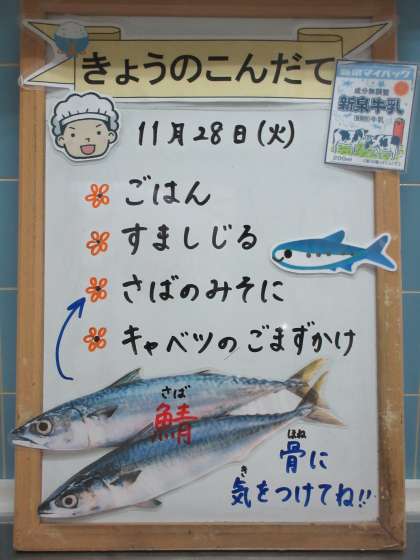 きょうのこんだて
成分無調整
新泉牛乳
200ml
11月28日(火)
ごはん
すましじる
さばのみそに
キャベツのごまずかけ
さば
鯖
ほね
骨に
き
気をつけてね!!